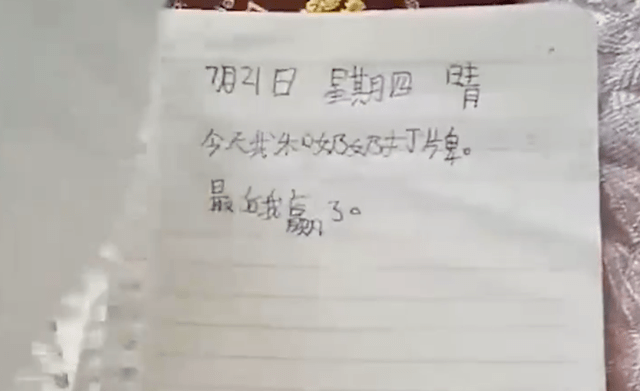 7月21日 星期四 晴
今天我和奶奶打牌。
最近我赢了。